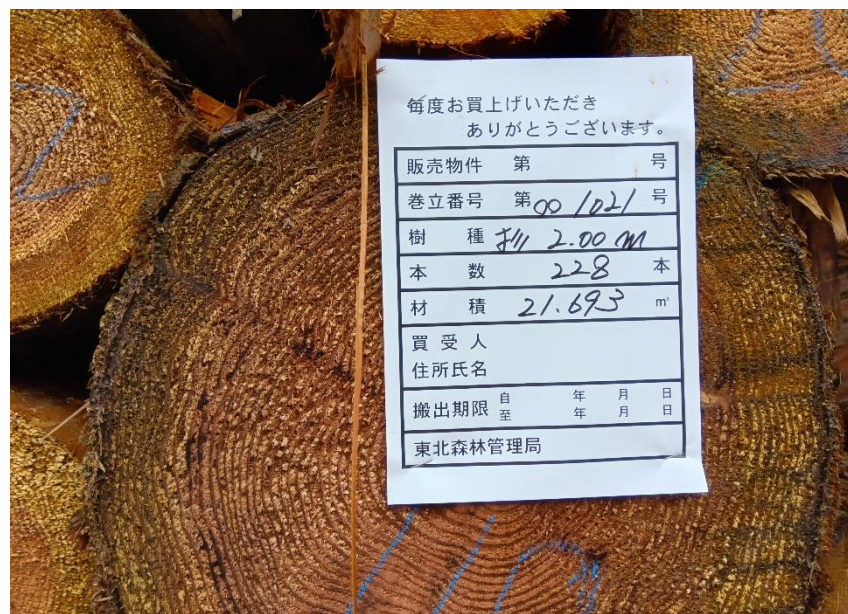 毎度お買上げいただき
ありがとうございます。
販売物件 第 号
巻立番号 第001021号
樹種 杉 2.00m
本数 228 本
材積 21.693 m³
買受人
住所氏名
搬出期限 自 年 月 日
至 年 月 日
東北森林管理局